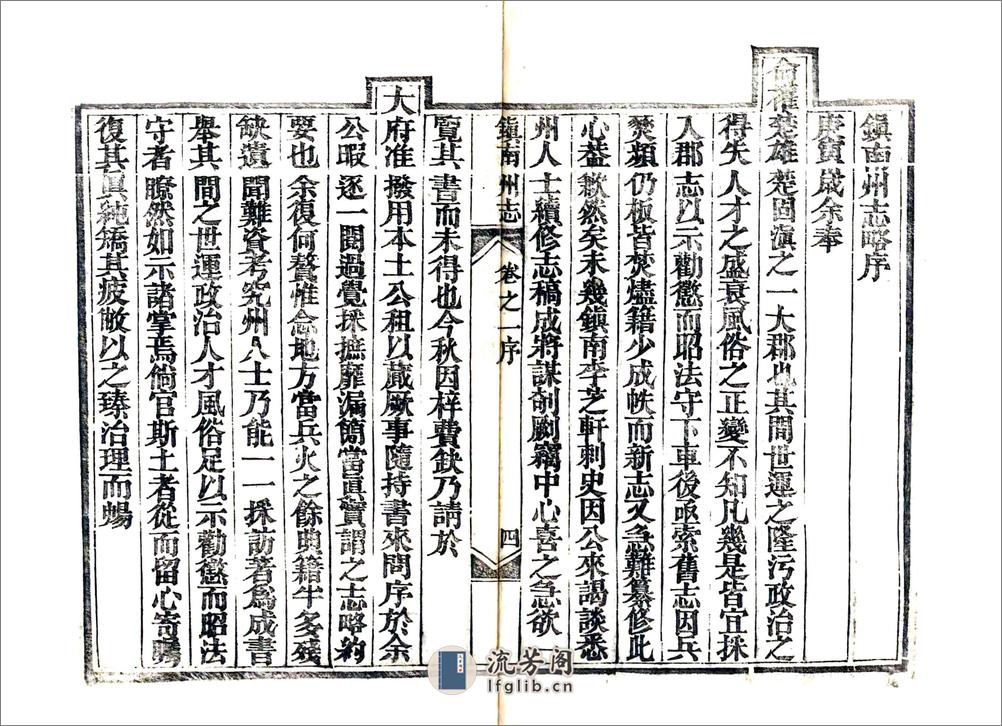 鎮南州志略序
庚寅歲余奉
命權楚雄楚固滇之一大郡也其間世運之隆污政治之
得失人才之盛衰風俗之正變不知凡幾是皆宜採
入郡志以示勸懲而昭法守下車後亟索舊志因兵
燹頻仍板皆焚燼籍少成帙而新志又急難纂修此
心葢歉然矣未幾鎮南李芝軒刺史因公來謁談悉
州人士續修志稿成將謀剞劂竊中心喜之急欲
鎮南州志 卷之一序 四
覽其書而未得也今秋因梓費缺乃請於
大府准撥用本土公租以蕆厥事隨持書來問序於余
公暇逐一閱過覺採摭靡漏簡當眞實謂之志略約
要也余復何贅惟念地方當兵火之餘典籍半多殘
缺遺聞難資考究州人士乃能一一採訪著爲成書
舉其間之世運政治人才風俗足以示勸懲而昭法
守者瞭然如示諸掌焉倘官斯土者從而留心寄
復其眞純矯其疲敝以之臻治理而
流芳阁
lfglib.cn